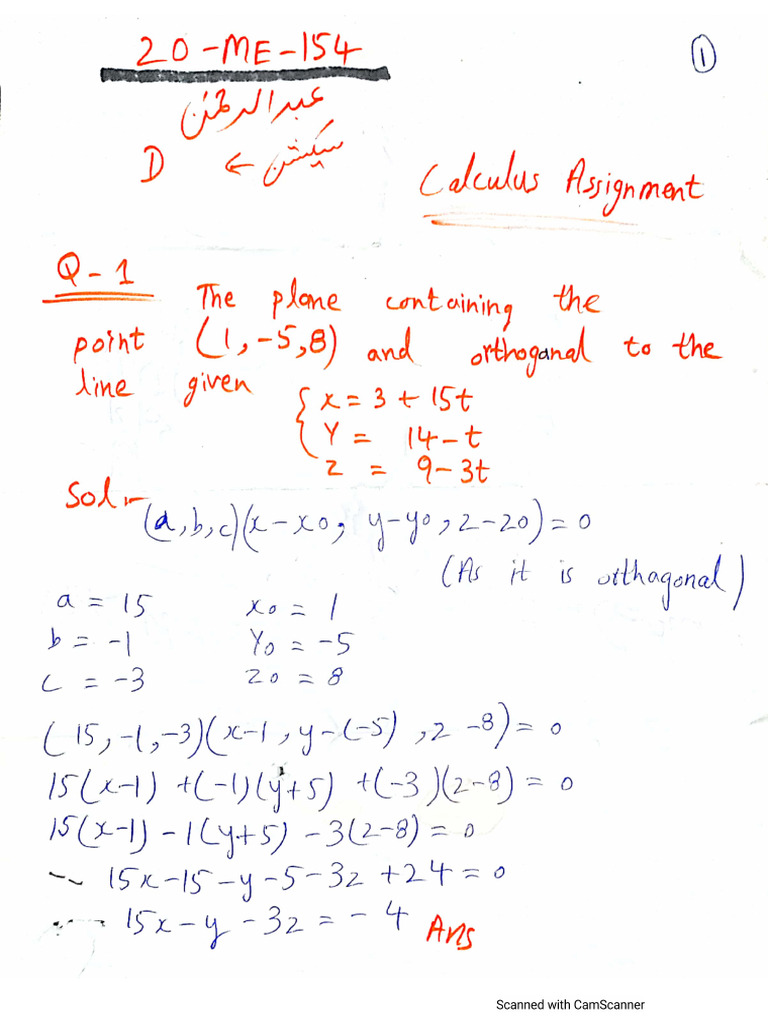 20-ME-154
①
عبدالرحمٰن
D ← سیکشن
Calculus Assignment
Q-1 The plane containing the
point (1,-5,8) and orthoganal to the
line given { x = 3 + 15t
Y = 14-t
z = 9-3t
Sol:-
(a,b,c)(x-x0, y-y0, z-z0) = 0
(As it is orthagonal)
a = 15 x0 = 1
b = -1 Y0 = -5
c = -3 z0 = 8
(15,-1,-3)(x-1, y-(-5), z-8) = 0
15(x-1) +(-1)(y+5) +(-3)(z-8) = 0
15(x-1) -1(y+5) -3(z-8) = 0
15x-15-y-5-3z+24 = 0
15x-y-3z = -4 Ans
Scanned with CamScanner